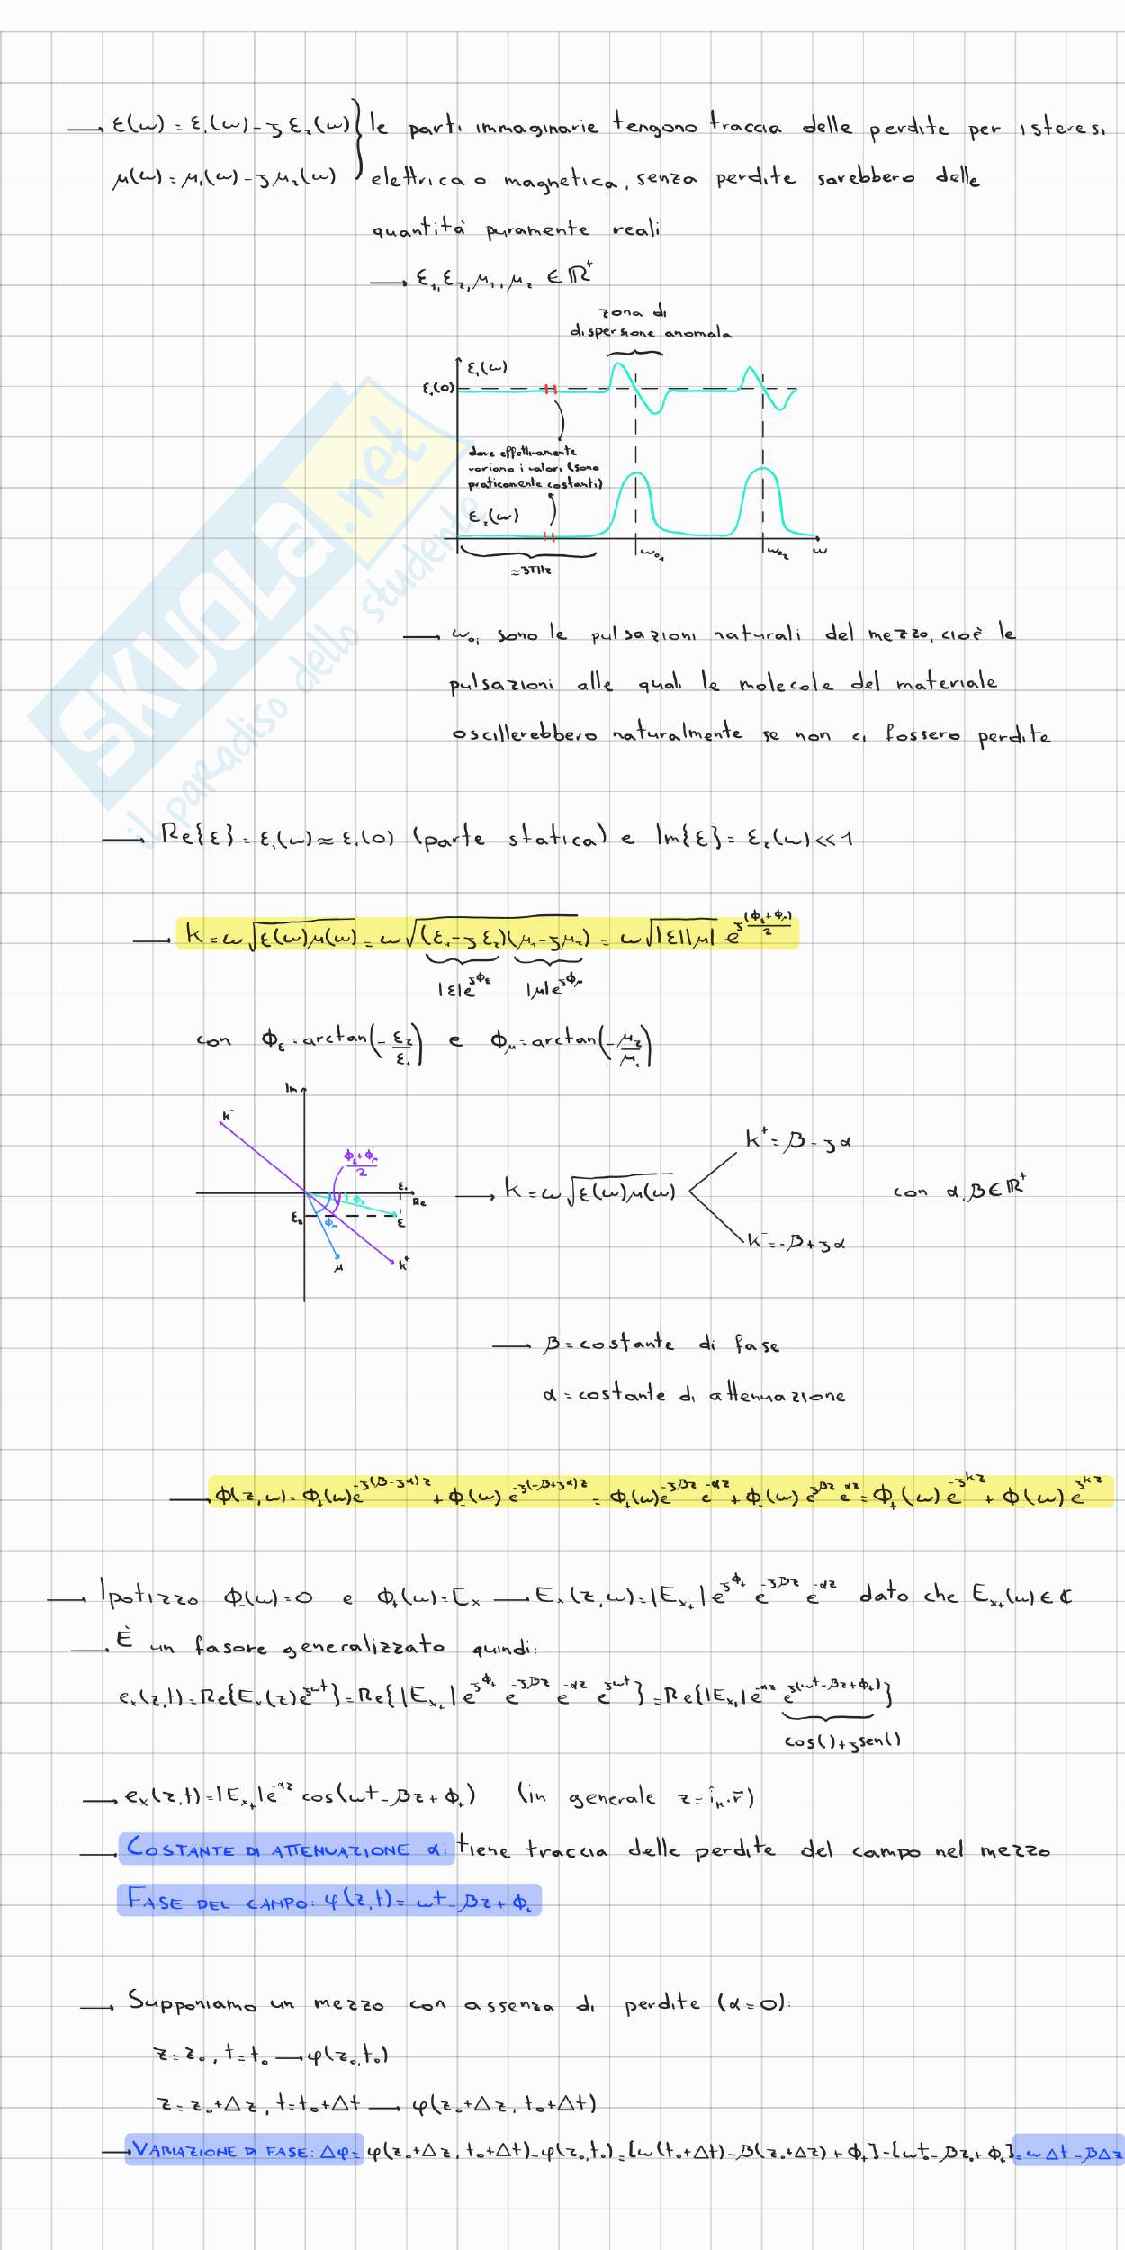 → ε(ω) = ε₁(ω) - j ε₂(ω) } le parti immaginarie tengono traccia delle perdite per isteresi
μ(ω) = μ₁(ω) - j μ₂(ω) elettrica o magnetica, senza perdite sarebbero delle
quantità puramente reali
→ ε₁, ε₂, μ₁, μ₂ ∈ ℝ⁺
zona di
dispersione anomala
ε₁(ω)
ε₁(0)
dove effettivamente
variano i valori (sono
praticamente costanti)
ε₂(ω)
ω₀₁ ω₀₂ ω
≈ 3THz
SKUOLA.net
il paradiso dello studente
→ ω₀ᵢ sono le pulsazioni naturali del mezzo, cioè le
pulsazioni alle quali le molecole del materiale
oscillerebbero naturalmente se non ci fossero perdite
→ Re{ε} = ε₁(ω) ≈ ε₁(0) (parte statica) e Im{ε} = ε₂(ω) << 1
→ k = ω√(ε(ω)μ(ω)) = ω√((ε₁-jε₂)(μ₁-jμ₂)) = ω√(|ε||μ|) e^(j(ϕ_ε+ϕ_μ)/2)
|ε|e^(jϕ_ε) |μ|e^(jϕ_μ)
con ϕ_ε = arctan(-ε₂/ε₁) e ϕ_μ = arctan(-μ₂/μ₁)
Im
k⁻
(ϕ_ε+ϕ_μ)/2
ε₁ Re
ε₂ ϕ_μ ε
μ k⁺
→ k = ω√(ε(ω)μ(ω))
k⁺ = β - jα
k⁻ = -β + jα
con α, β ∈ ℝ⁺
→ β = costante di fase
α = costante di attenuazione
→ ϕ(z,ω) = ϕ₊(ω)e^(-j(β-jα)z) + ϕ₋(ω) e^(-j(-β+jα)z) = ϕ₊(ω)e^(-jβz) e^(-αz) + ϕ₋(ω) e^(jβz) e^(αz) = ϕ₊(ω) e^(-jkz) + ϕ₋(ω) e^(jkz)
→ Ipotizzo ϕ₋(ω) = 0 e ϕ₊(ω) = Eₓ → Eₓ(z,ω) = |Eₓ₊| e^(jϕ₊) e^(-jβz) e^(-αz) dato che Eₓ₊(ω) ∈ ℂ
→ È un fasore generalizzato quindi:
eₓ(z,t) = Re{Eₓ(z)e^(jωt)} = Re{|Eₓ₊| e^(jϕ₊) e^(-jβz) e^(-αz) e^(jωt)} = Re{|Eₓ₊| e^(-αz) e^(j(ωt-βz+ϕ₊))}
cos()+jsen()
→ eₓ(z,t) = |Eₓ₊|e^(-αz) cos(ωt - βz + ϕ₊) (in generale z = iₙ·r̄)
→ COSTANTE DI ATTENUAZIONE α: tiene traccia delle perdite del campo nel mezzo
FASE DEL CAMPO: φ(z,t) = ωt - βz + ϕ₊
→ Supponiamo un mezzo con assenza di perdite (α=0):
z = z₀, t = t₀ → φ(z₀,t₀)
z = z₀+Δz, t = t₀+Δt → φ(z₀+Δz, t₀+Δt)
→ VARIAZIONE DI FASE: Δφ = φ(z₀+Δz, t₀+Δt) - φ(z₀,t₀) = [ω(t₀+Δt) - β(z₀+Δz) + ϕ₊] - [ωt₀ - βz₀ + ϕ₊] = ωΔt - βΔz